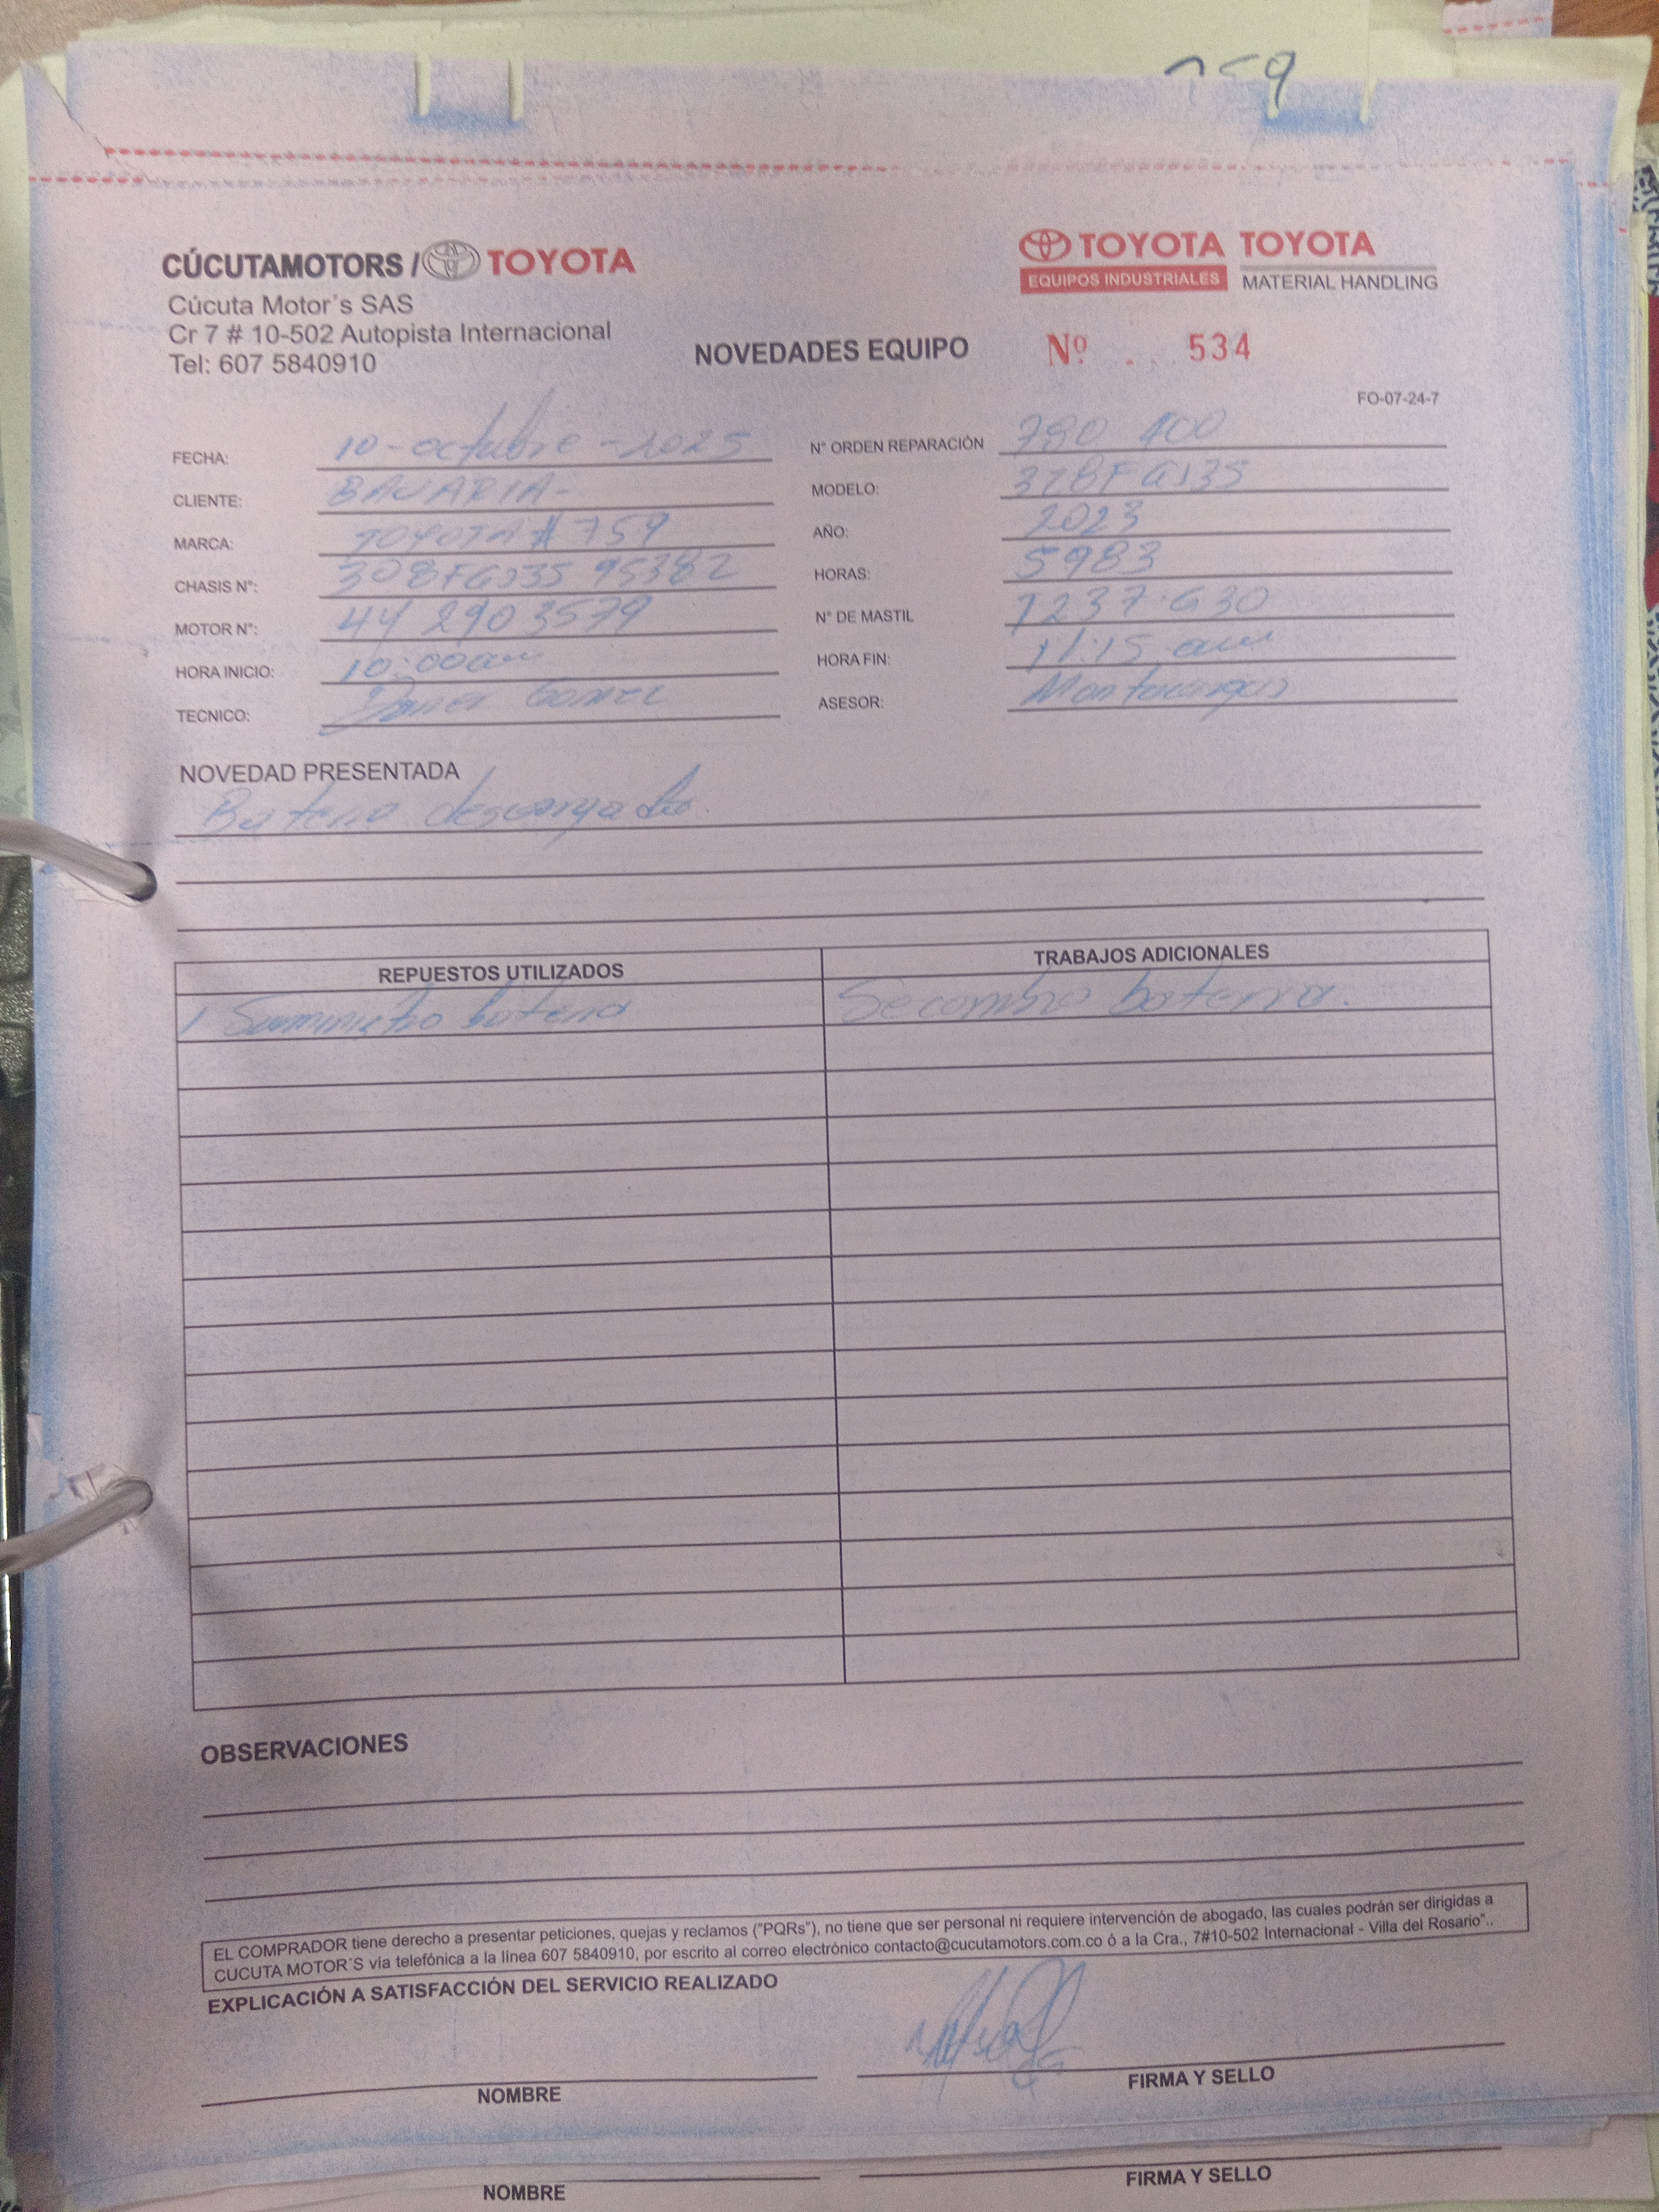 759
CÚCUTAMOTORS / TOYOTA
Cúcuta Motor´s SAS
Cr 7 # 10-502 Autopista Internacional
Tel: 607 5840910
TOYOTA TOYOTA
EQUIPOS INDUSTRIALES MATERIAL HANDLING
NOVEDADES EQUIPO Nº. 534
FO-07-24-7
FECHA: 10-octubre-2025 N° ORDEN REPARACIÓN 780 400
CLIENTE: BAVARIA- MODELO:
MARCA: TOYOTA # 759 AÑO: 2023
CHASIS N°: 95382 HORAS: 5983
MOTOR N°: 44 2903579 N° DE MASTIL
HORA INICIO: 10:00am HORA FIN: 11:15 am
TECNICO: Gomez ASESOR: Montacargas
NOVEDAD PRESENTADA
Bateria descargada.
REPUESTOS UTILIZADOS TRABAJOS ADICIONALES
1 Suministro bateria Se cambio bateria.
OBSERVACIONES
EL COMPRADOR tiene derecho a presentar peticiones, quejas y reclamos ("PQRs"), no tiene que ser personal ni requiere intervención de abogado, las cuales podrán ser dirigidas a
CUCUTA MOTOR´S vía telefónica a la linea 607 5840910, por escrito al correo electrónico contacto@cucutamotors.com.co ó a la Cra., 7#10-502 Internacional - Villa del Rosario"..
EXPLICACIÓN A SATISFACCIÓN DEL SERVICIO REALIZADO
NOMBRE FIRMA Y SELLO
NOMBRE FIRMA Y SELLO